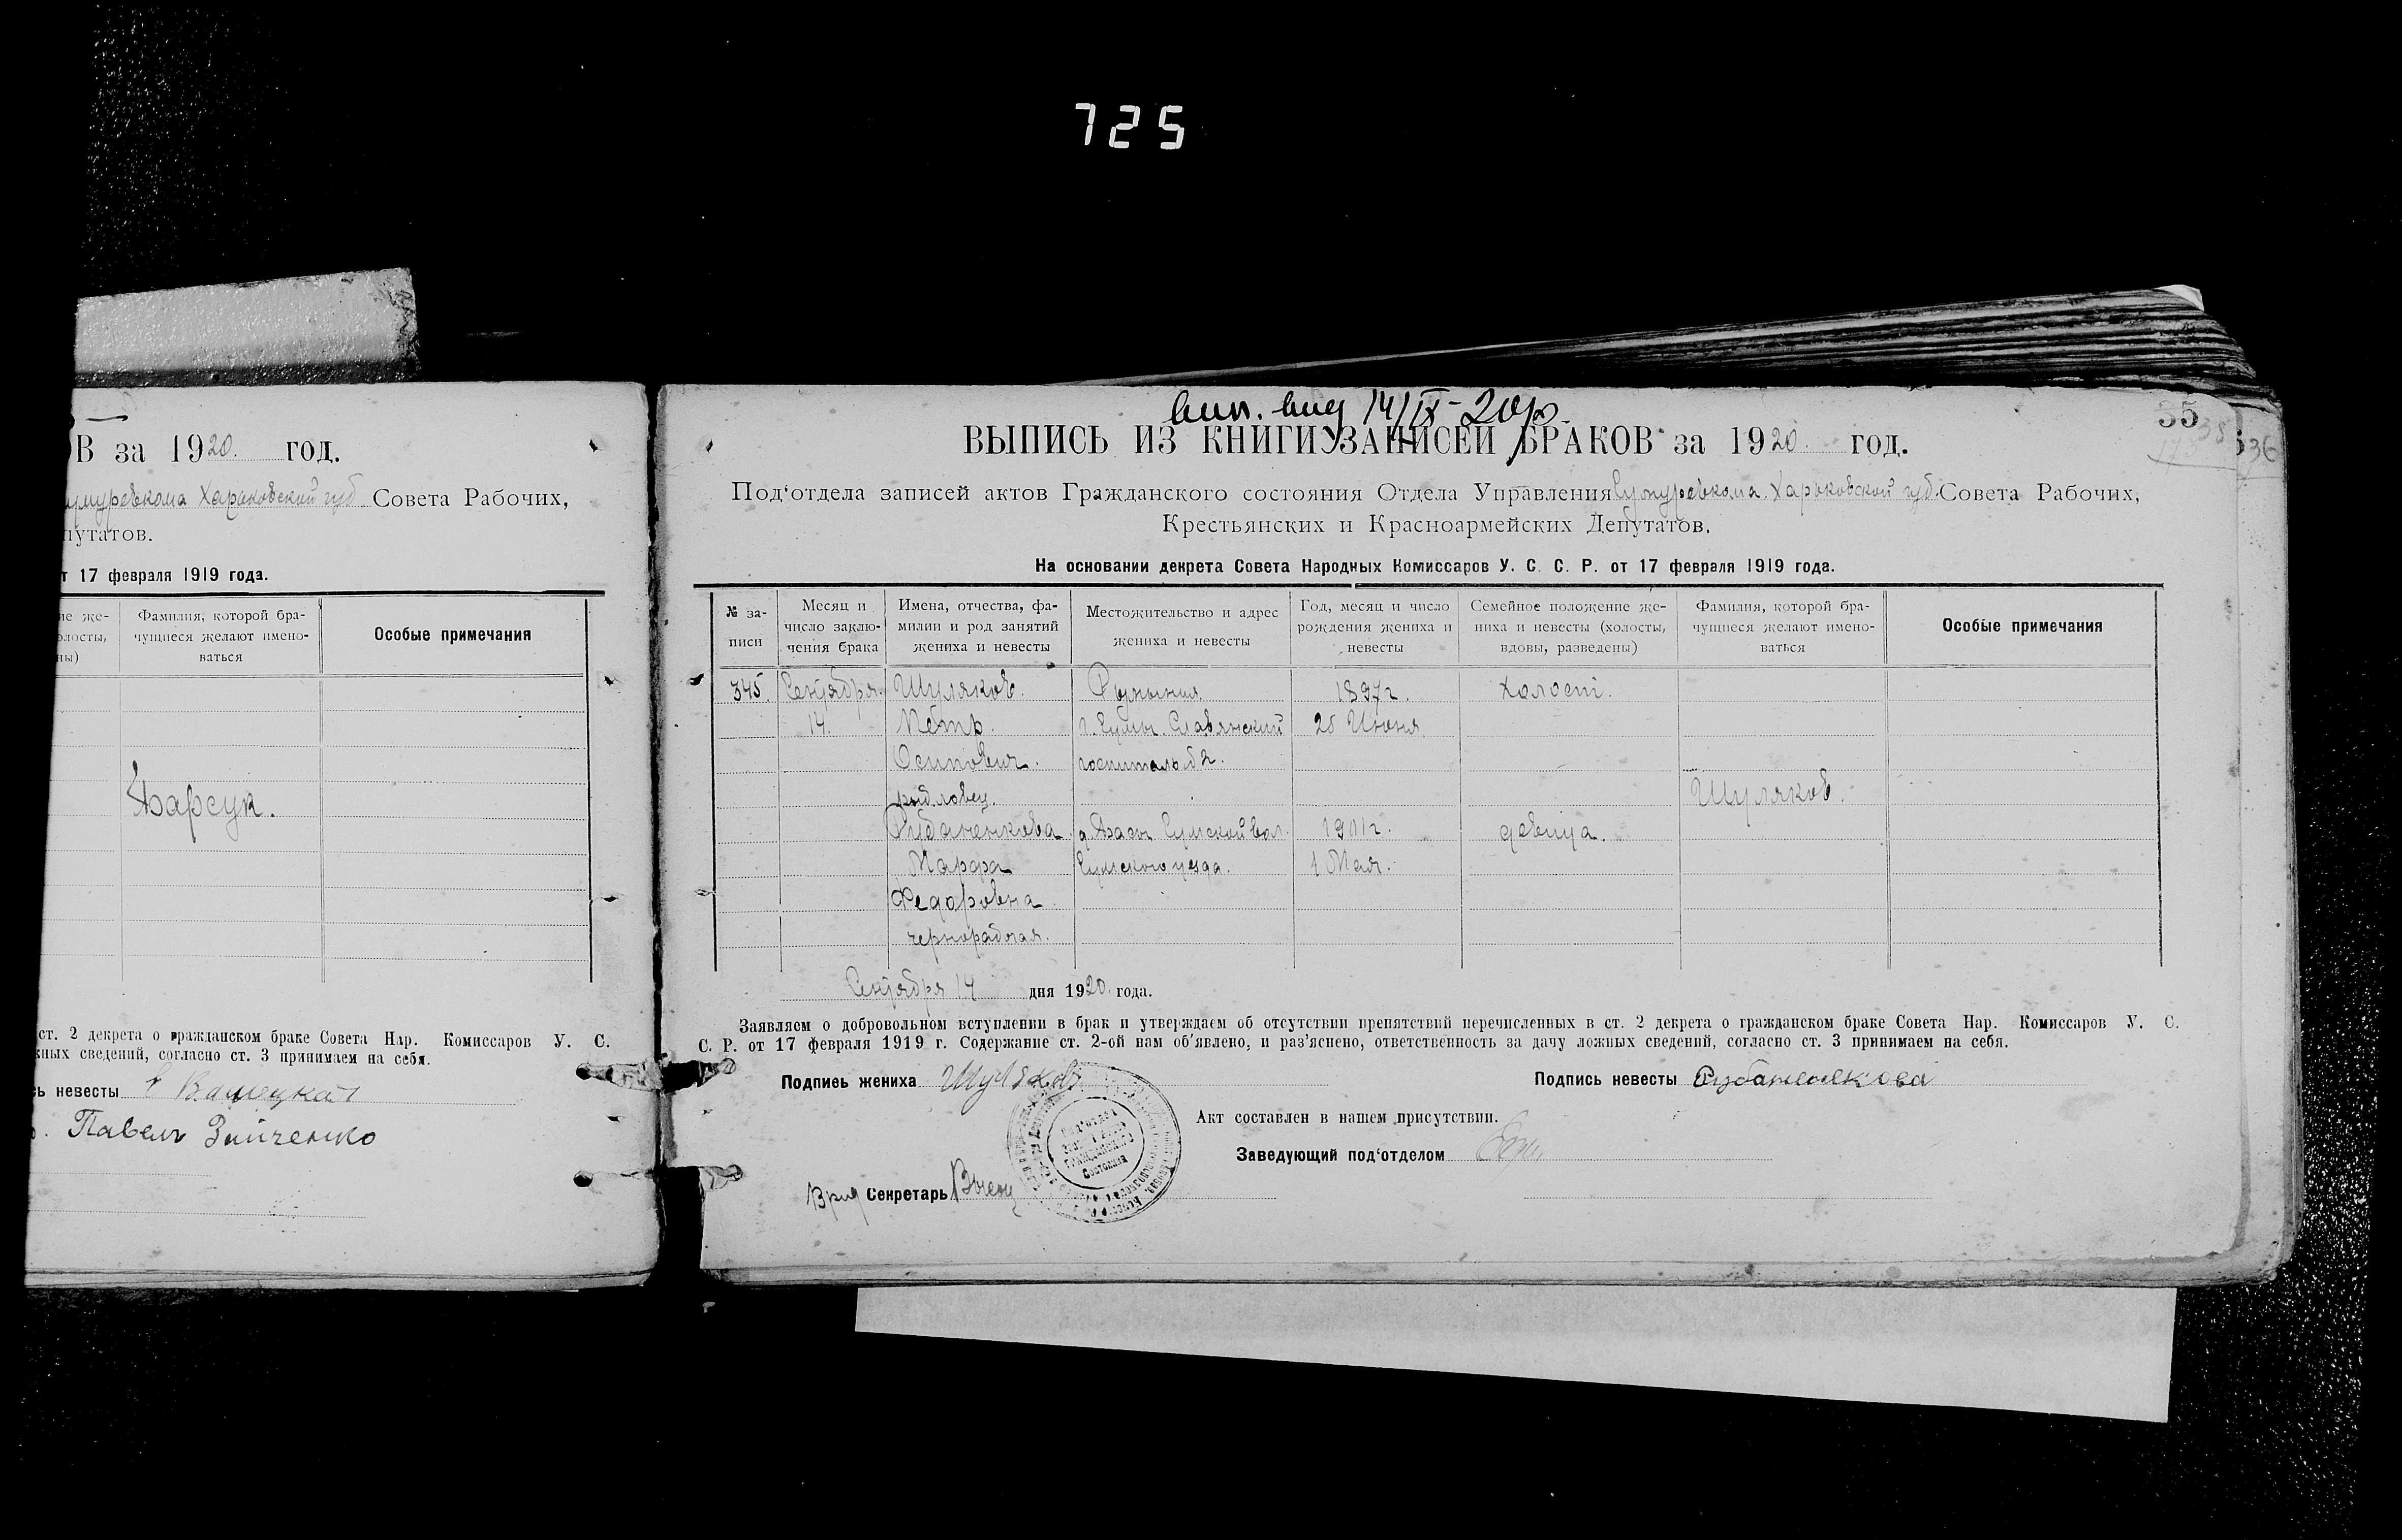 725
В за 1920. год.
Харьковской губ. Совета Рабочих,
путатов.
т 17 февраля 1919 года.
ие же-
олосты,
ны)
Фамилия, которой бра-
чущиеся желают имено-
ваться
Особые примечания
Барсук.
ст. 2 декрета о гражданском браке Совета Нар. Комиссаров У. С.
жных сведений, согласно ст. 3 принимаем на себя.
ь невесты
Павел Зайченко
14/IX-20
35
38
36
ВЫПИСЬ ИЗ КНИГИ ЗАПИСЕЙ БРАКОВ за 1920 год.
Под‘отдела записей актов Гражданского состояния Отдела Управления Сумуревкома Харьковской губ. Совета Рабочих,
Крестьянских и Красноармейских Депутатов.
На основании декрета Совета Народных Комиссаров У. С. С. Р. от 17 февраля 1919 года.
№ за-
писи
Месяц и
число заклю-
чения брака
Имена, отчества, фа-
милии и род занятий
жениха и невесты
Местожительство и адрес
жениха и невесты
Год, месяц и число
рождения жениха и
невесты
Семейное положение же-
ниха и невесты (холосты,
вдовы, разведены)
Фамилия, которой бра-
чущиеся желают имено-
ваться
Особые примечания
345. Сентября Шуляков. Румыния. 1897г. холост.
14. Петр. г. Сумы. Славянский 25 Июня
Осипович. госпиталь д 2.
рыболовец.
Шуляков.
Рубаненкова д. Басы Сумской вол. 1901г. девица.
Марфа Сумского уезда. 1 Мая.
Федоровна
чернорабочая.
Сентября 14 дня 1920. года.
Заявляем о добровольном вступлении в брак и утверждаем об отсутствии препятствий перечисленных в ст. 2 декрета о гражданском браке Совета Нар. Комиссаров У. С.
С. Р. от 17 февраля 1919 г. Содержание ст. 2-ой нам об’явлено, и раз’яснено, ответственность за дачу ложных сведений, согласно ст. 3 принимаем на себя.
Подпись жениха Шуляков
Подпись невесты Рубаненкова
Акт составлен в нашем присутствии.
Заведующий под‘отделом
Врид Секретарь
Гражданского
Состояния